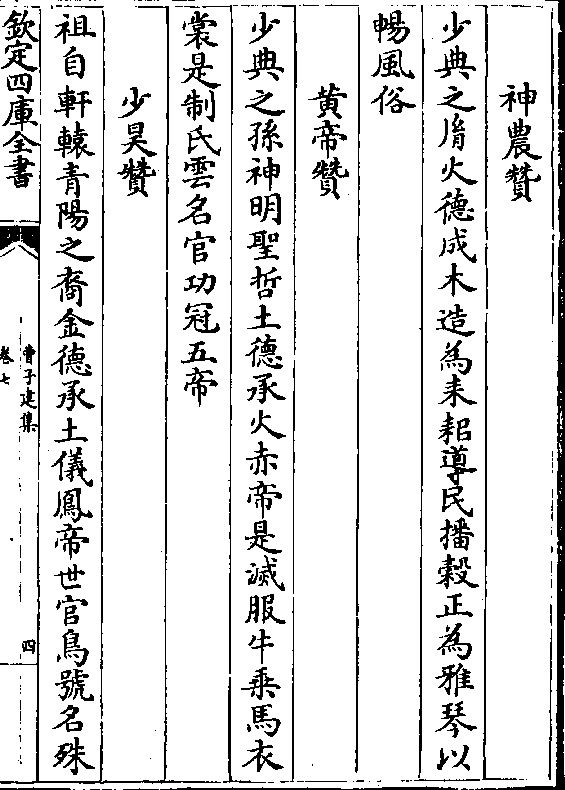 神農贊
少典之胤火德成木造為耒耜導民播穀正為雅琴以
暢風俗
黄帝贊
少典之孫神明聖哲土德承火赤帝是滅服牛乗馬衣
裳是制氏雲名官功冠五帝
少昊贊
祖自軒轅青陽之裔金德承土儀鳳帝世官鳥號名殊
欽定四庫全書
曹子建集
卷七
四